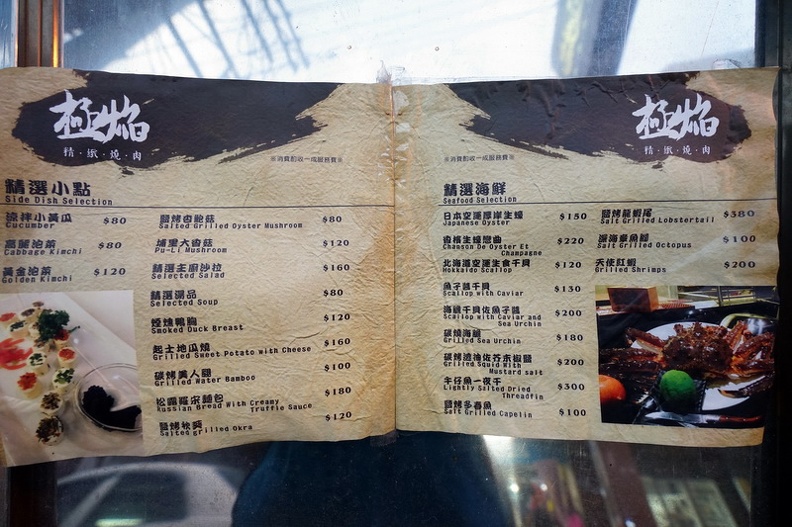 極焰
精·緻·燒·肉
※消費酌收一成服務費※
精選小點
Side Dish Selection
涼拌小黃瓜 $80
Cucumber
高麗泡菜 $80
Cabbage Kimchi
黃金泡菜 $120
Golden Kimchi
鹽烤杏鮑菇 $80
Salted Grilled Oyster Mushroom
埔里大香菇 $120
Pu-Li Mushroom
精選主廚沙拉 $160
Selected Salad
精選湯品 $80
Selected Soup
煙燻鴨胸 $120
Smoked Duck Breast
起士地瓜燒 $160
Grilled Sweet Potato with Cheese
碳烤美人腿 $100
Grilled Water Bamboo
松露羅宋麵包 $180
Russian Bread With Creamy
Truffle Sauce
鹽烤秋葵 $120
Salted grilled Okra
極焰
精·緻·燒·肉
※消費酌收一成服務費※
精選海鮮
Seafood Selection
日本空運厚岸生蠔 $150
Japanese Oyster
香檳生蠔戀曲 $220
Chanson De Oyster Et
Champagne
北海道空運生食干貝 $120
Hokkaido Scallop
魚子醬干貝 $130
Scallop with Caviar
海膽干貝佐魚子醬 $200
Scallop with Caviar and
Sea Urchin
碳燒海膽 $180
Sea Urchin
碳烤透抽佐芥末椒鹽 $200
Grilled Squid With
Mustard salt
午仔魚一夜干 $300
Lightly Salted Dried
Threadfin
鹽烤多春魚 $100
Salt Grilled Capelin
鹽烤龍蝦尾 $380
Salt Grilled Lobstertail
深海章魚腳 $100
Salt Grilled Octopus
天使紅蝦 $200
Grilled Shrimps